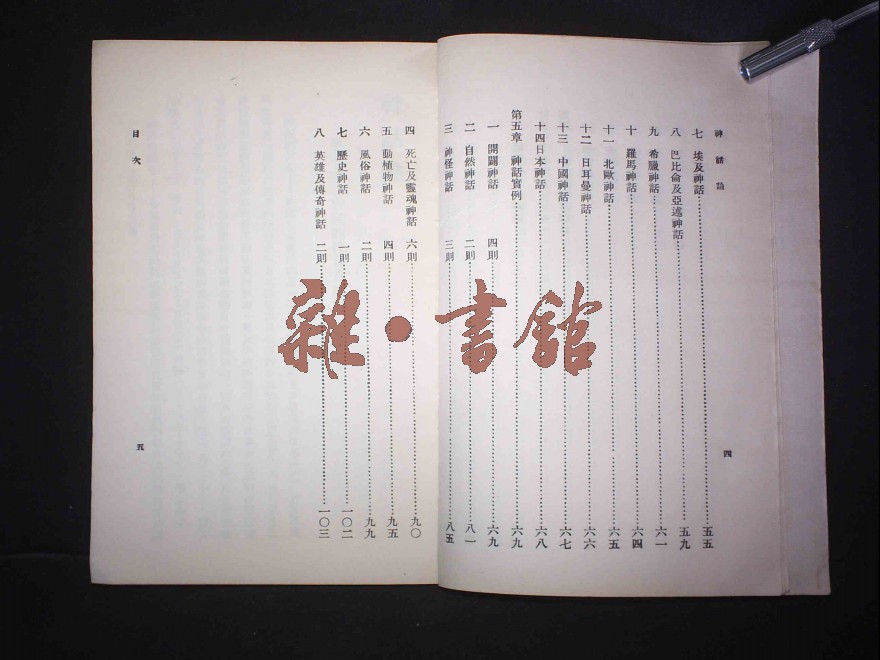 神話論
七 埃及神話 五五
八 巴比倫及亞述神話 五九
九 希臘神話 六一
十 羅馬神話 六四
十一 北歐神話 六五
十二 日耳曼神話 六六
十三 中國神話 六七
十四日本神話 六八
第五章 神話實例 六九
一 開闢神話 四則 六九
二 自然神話 二則 八一
三 神怪神話 三則 八五
四
四 死亡及靈魂神話 六則 九〇
五 動植物神話 四則 九五
六 風俗神話 二則 九九
七 歷史神話 一則 一〇二
八 英雄及傳奇神話 二則 一〇三
目次
五
雜·書館